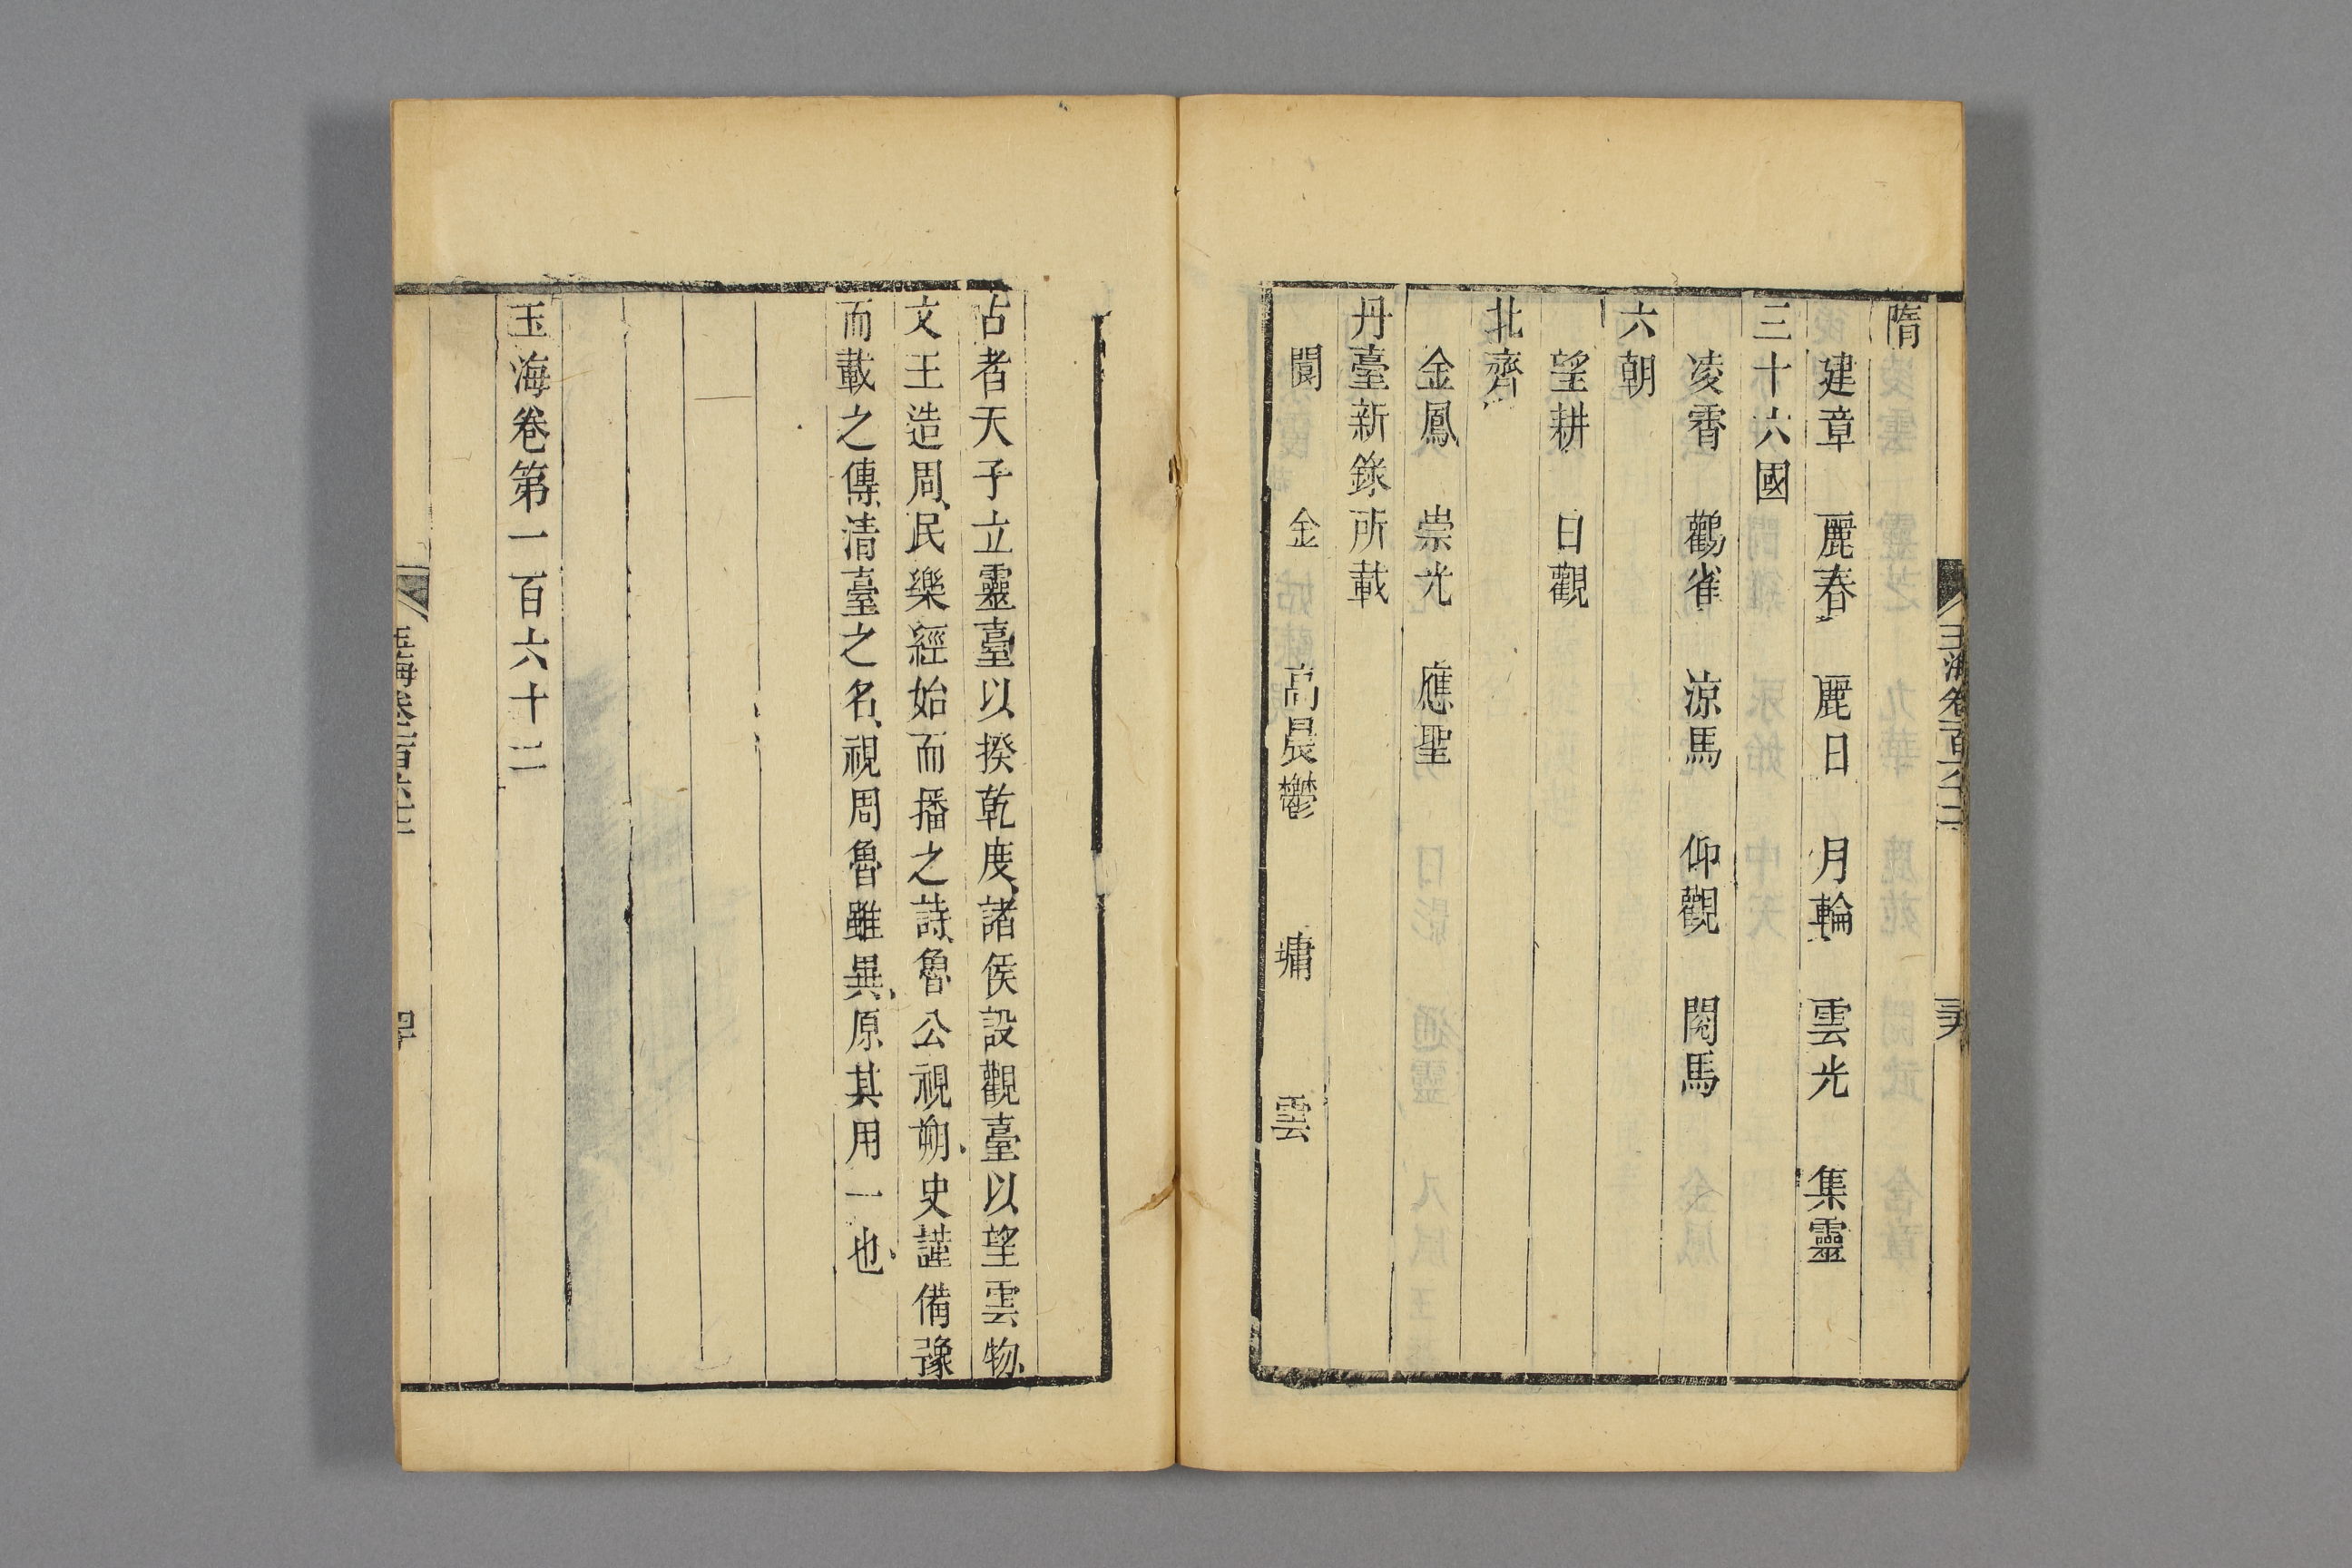 隋
建章　麗春　麗日　月輪　雲光　集靈
三十六國
凌霄　鸛雀　涼馬　仰觀　閱馬
六朝
望耕　日觀
北齊
金鳳　崇光　應聖
丹臺新錄所載
閬　金　高晨鬱　墉　雲
古者天子立靈臺以揆乾度諸侯設觀臺以望雲物
文王造周民樂經始而播之詩魯公視朔史謹備豫
而載之傳清臺之名視周魯雖異原其用一也
玉海卷第一百六十二
玉海卷一百六十二